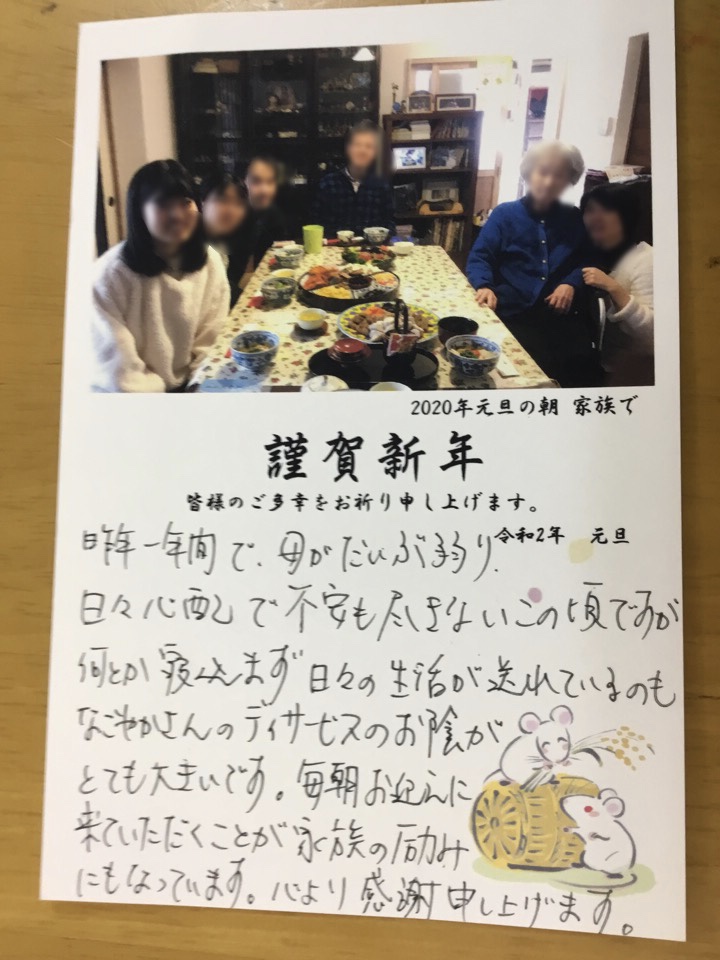 2020年元旦の朝 家族で
謹賀新年
皆様のご多幸をお祈り申し上げます。
令和2年 元旦
昨年一年間で、母がだいぶ弱り、
日々心配で不安も尽きないこの頃ですが
何とか寝込まず日々の生活が送れているのも
なごやかさんのデイサービスのお陰が
とても大きいです。毎朝お迎えに
来ていただくことが家族の励み
にもなっています。心より感謝申し上げます。